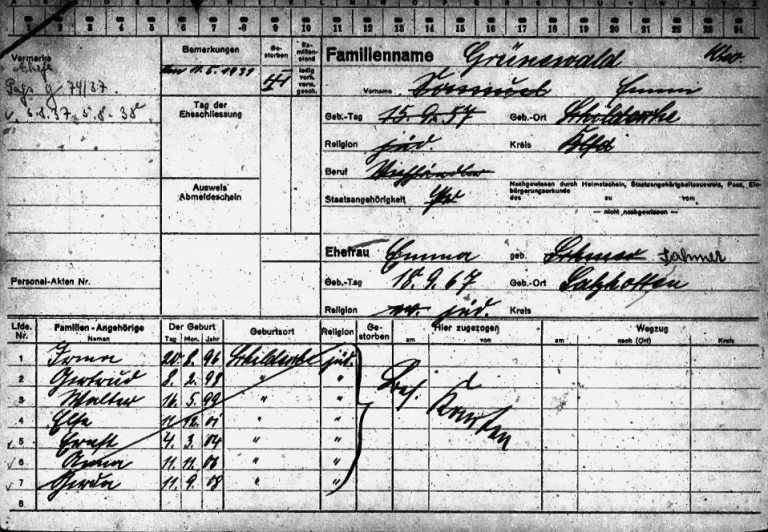 2 3 4 5 6 7 8 9 10 11 12 13 14 15 16 17 18 19 20 21 22 23 24
Vermerke
Bemerkungen
Ge-
storben
Fa-
milien-
stand
ledig
verh.
verw.
gesch.
Familienname Grünewald Wwe.
Vorname Samuel Emma
Geb.-Tag 15.9.57 Geb.-Ort Schildesche
Religion jüd. Kreis
Beruf Viehhändler
Staatsangehörigkeit
Nachgewiesen durch Heimatschein, Staatsangehörigkeitsausweis, Pass, Ein-
bürgerungsurkunde
des zu vom
— nicht nachgewiesen —
Pass g 74/37
5.8.38
Tag der
Eheschliessung
Ausweis
Abmeldeschein
Personal-Akten Nr.
Ehefrau Emma geb. Sahmer
Geb.-Tag 18.9.67 Geb.-Ort Salzkotten
Religion jüd. Kreis
Lfde.
Nr.
Familien-Angehörige
Namen
Der Geburt
Tag Mon. Jahr
Geburtsort
Religion
Ge-
storben
Hier zugezogen
am von
Wegzug
am nach (Ort) Kreis
1 Irma 20. 8. 96 Schildesche jüd.
2 Gertrud 8. 2. 98 " "
3 Walter 16. 5. 99 " "
4 Else 11. 12. 01 " "
5 Ernst 4. 3. 04 " "
6 Anna 11. 11. 06 " "
7 Gerda 11. 9. 08 " "
8